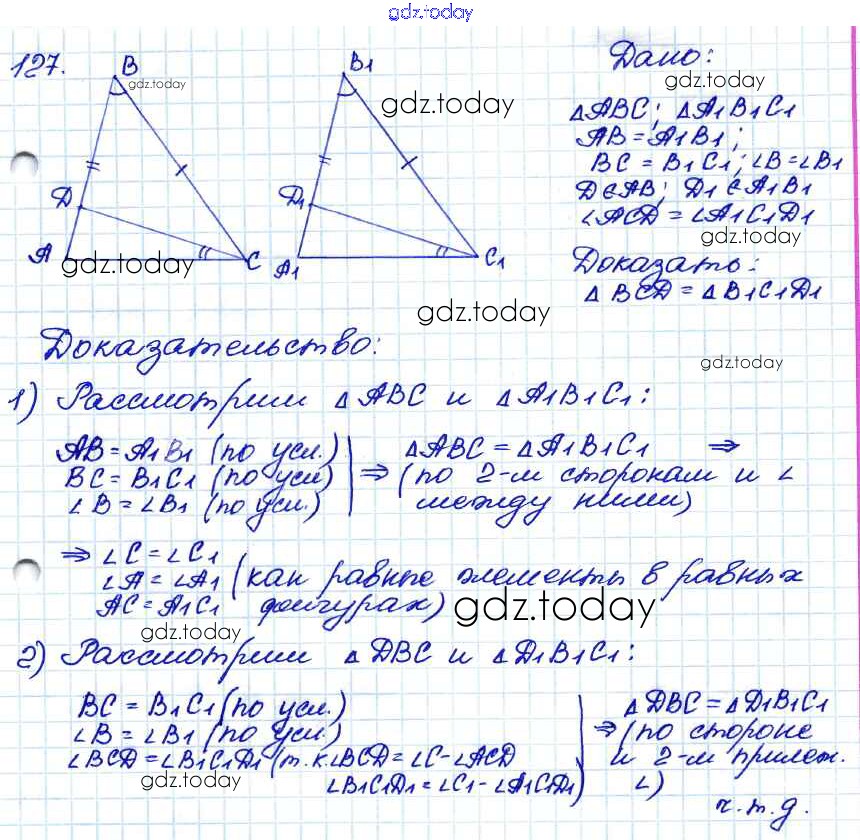 gdz.today
127.
B
gdz.today
A
D
C
gdz.today
B1
gdz.today
A1
D1
C1
Дано:
gdz.today
△ABC; △A1B1C1
AB = A1B1;
BC = B1C1; ∠B = ∠B1
D∈AB; D1∈A1B1
∠ACD = ∠A1C1D1
gdz.today
Доказать:
△BCD = △B1C1D1
gdz.today
Доказательство:
gdz.today
1) Рассмотрим △ABC и △A1B1C1:
AB = A1B1 (по усл.) | △ABC = △A1B1C1 ⇒
BC = B1C1 (по усл) | ⇒ (по 2-м сторокам и ∠
∠B = ∠B1 (по усл.) | между ними)
⇒ ∠C = ∠C1
∠A = ∠A1 (как равные элементы в равных
AC = A1C1 фигурах)
gdz.today
gdz.today
2) Рассмотрим △DBC и △D1B1C1:
BC = B1C1 (по усл.)
∠B = ∠B1 (по усл.)
∠BCD = ∠B1C1D1 (т.к. ∠BCD = ∠C - ∠ACD
∠B1C1D1 = ∠C1 - ∠A1C1D1)
gdz.today
△DBC = △D1B1C1
⇒ (по стороне
и 2-м прилеж.
∠)
ч.т.д.